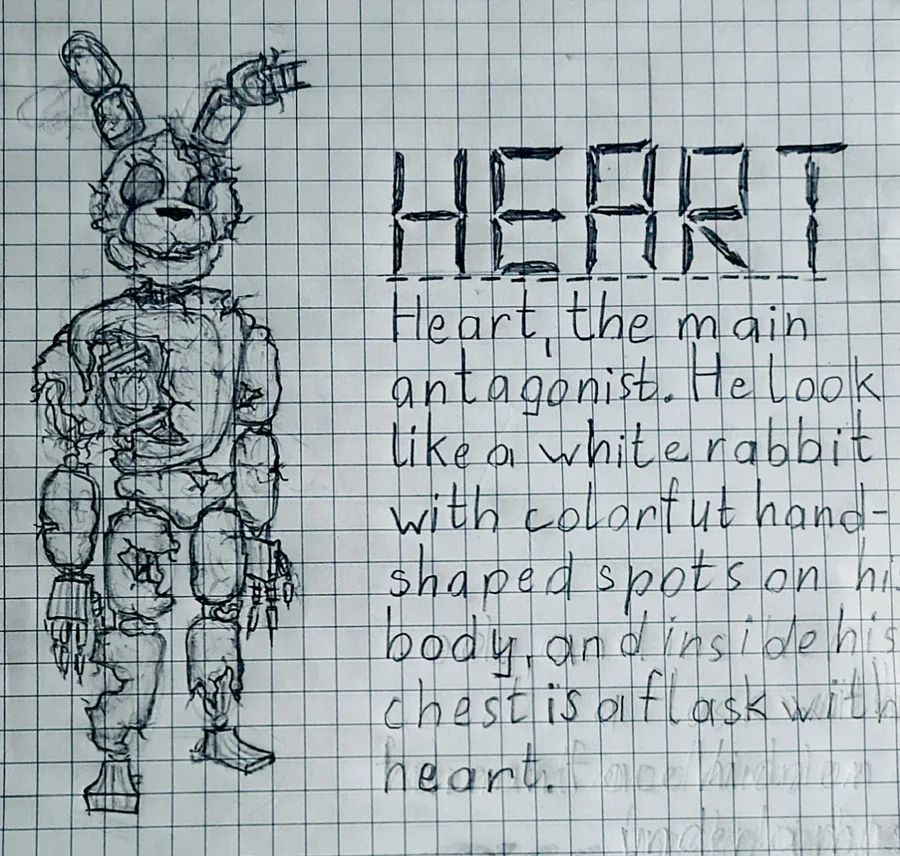 HEART
Heart, the main
antagonist. He look
like a white rabbit
with colorfut hand-
shaped spots on his
body, and inside his
chest is a flask with
heart.